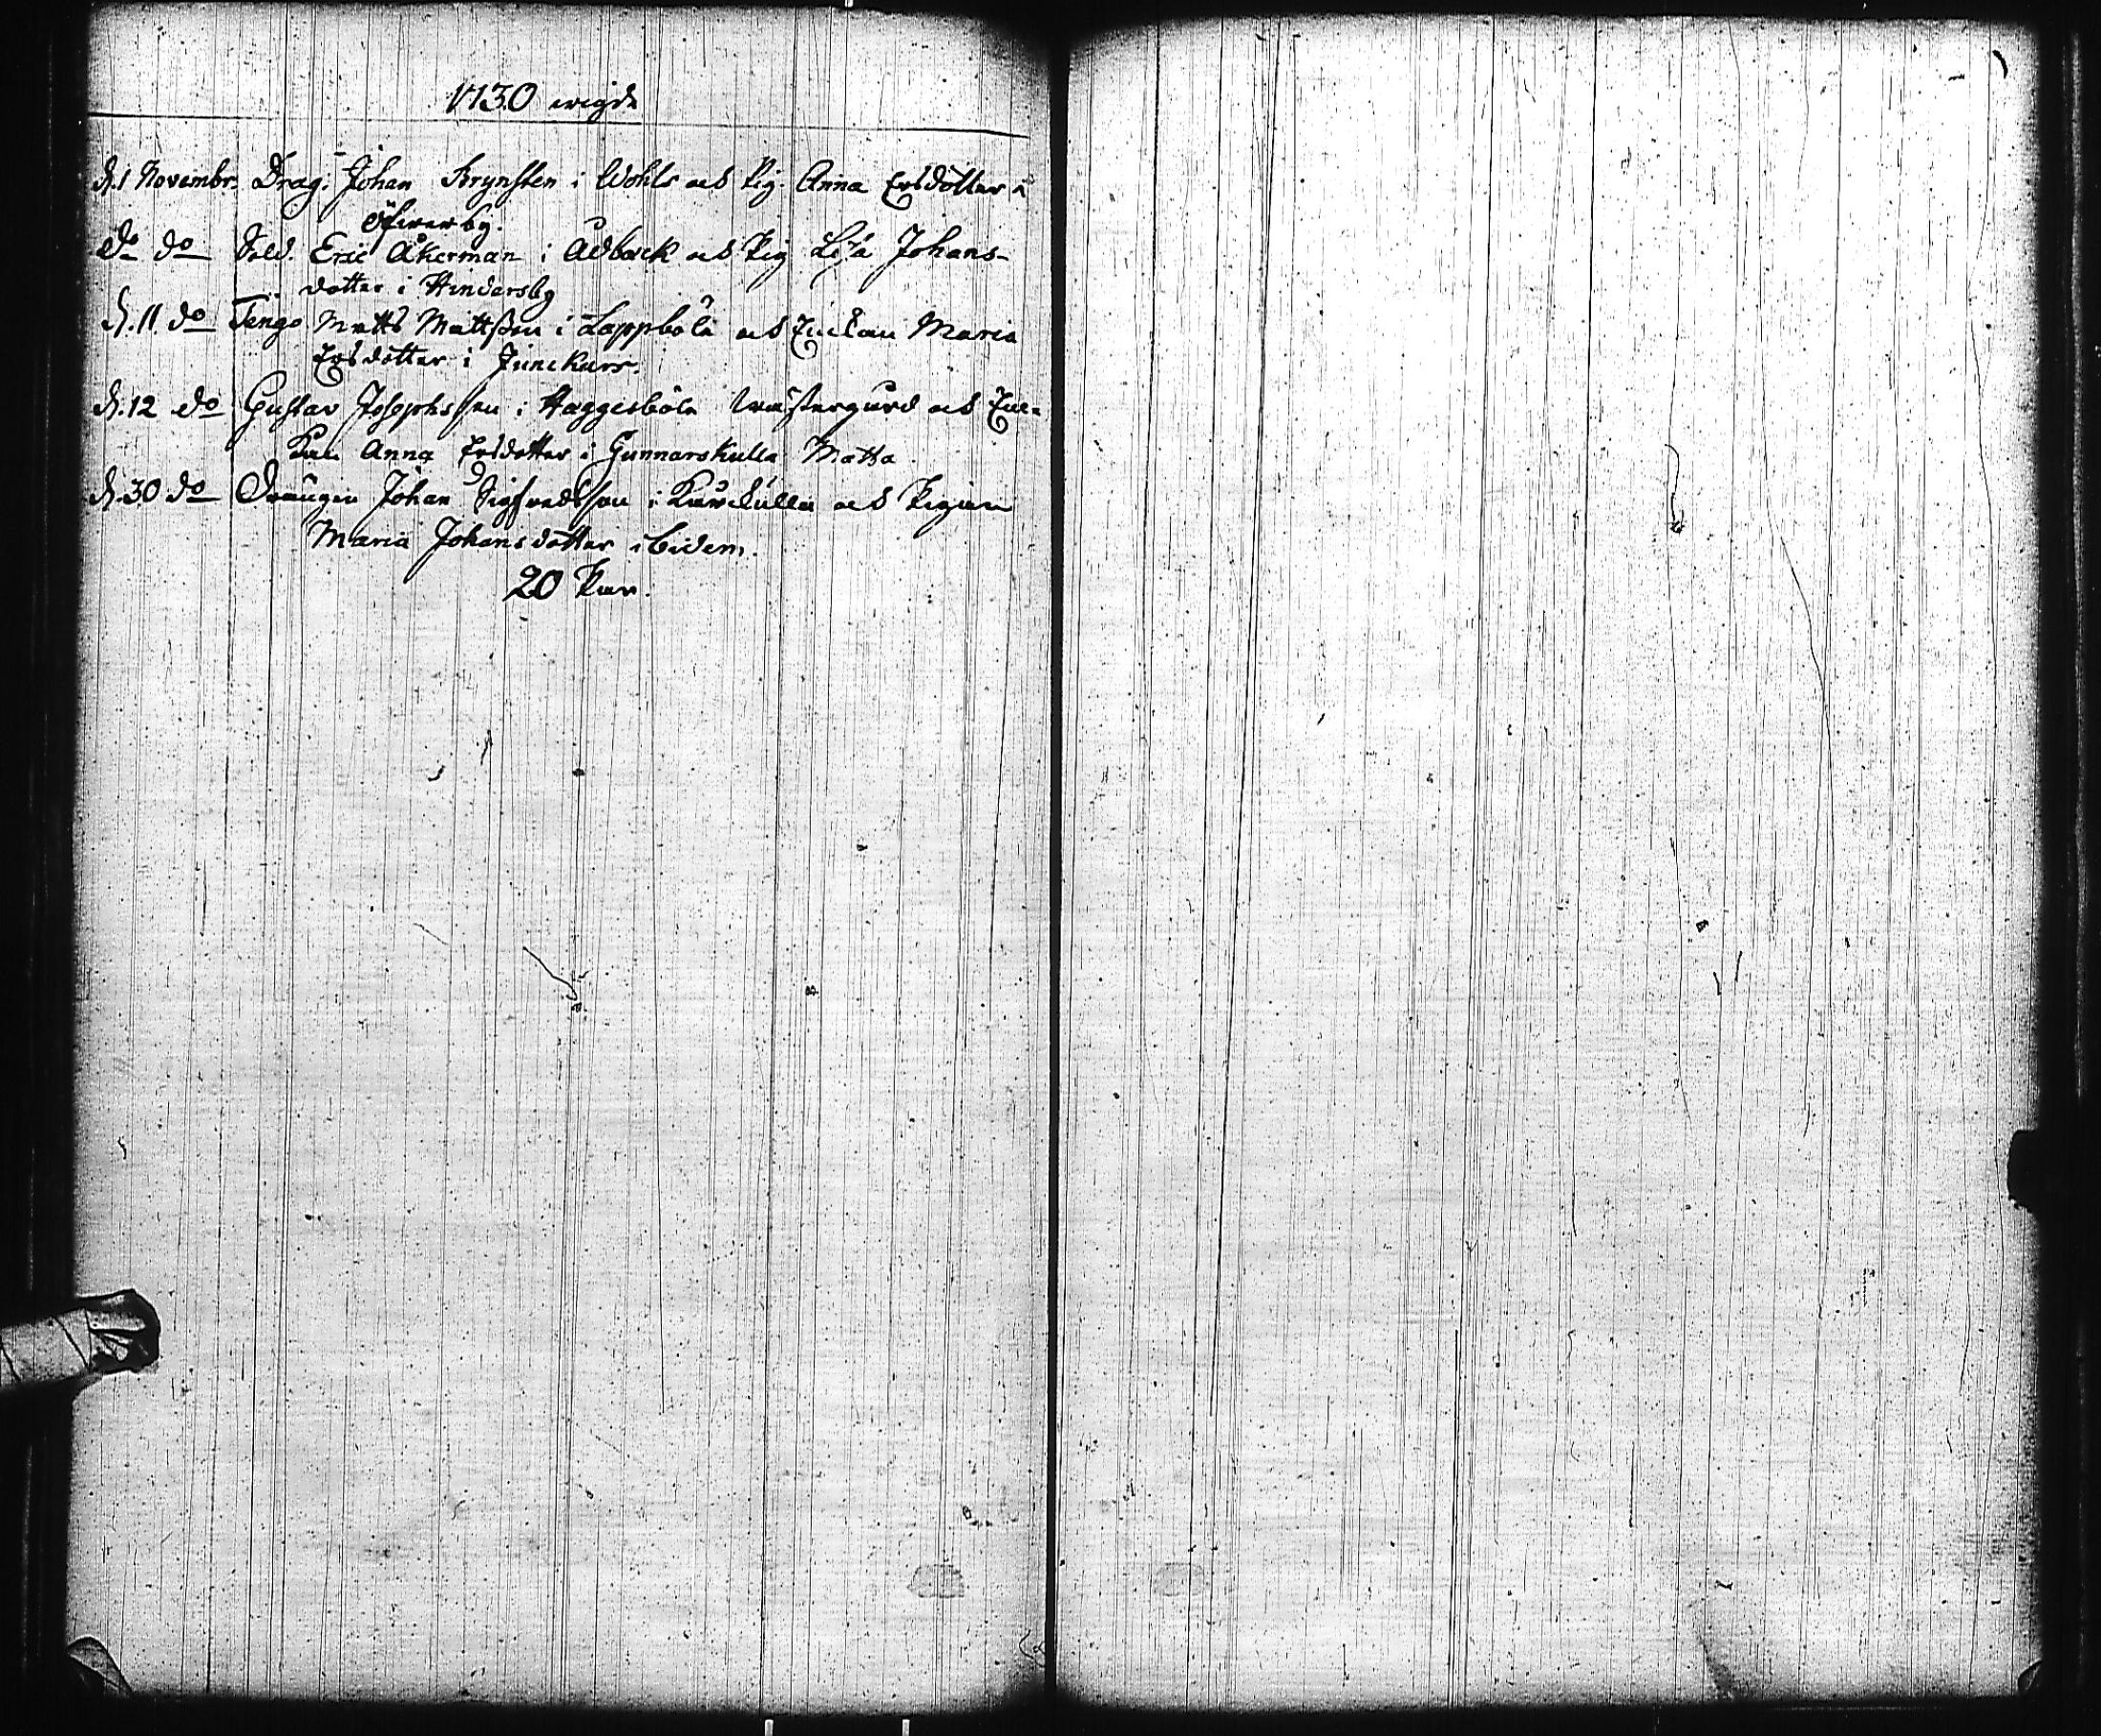 1730 wigde
d. 1 Novembr. Drag. Johan Brynsten i Wohls och Pig. Anna Ersdotter i
Öfwerby.
do do Sold. Eric Åkerman i Adback och Pig Lisa Johans-
dotter i Hindersby
d. 11. do Matts Mattsson i Lappböle och Enckan Maria
Ersdotter i Junckars.
d. 12 do Gustav Josephsson i Haggesböle Wästergård och En-
kan Anna Ersdotter i Gunnarskulla Matta
d. 30 do Drängen Johan Sigfredsson i Kurckulla och Pigan
Maria Johansdotter ibidem.
20 Par.